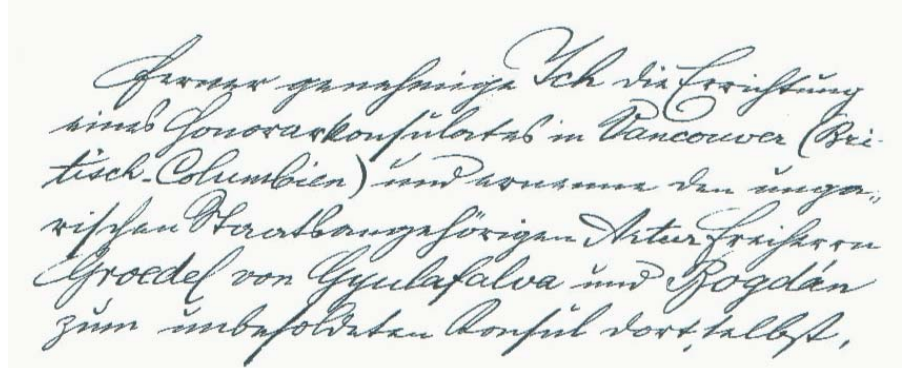 Ferner genehmige Ich die Errichtung
eines Honorarkonsulates in Vancouver (Bri-
tisch-Columbien) und ernenne den unga-
rischen Staatsangehörigen Artur Freiherrn
Groedel von Gyulafalva und Bogdán
zum unbesoldeten Konsul dortselbst.